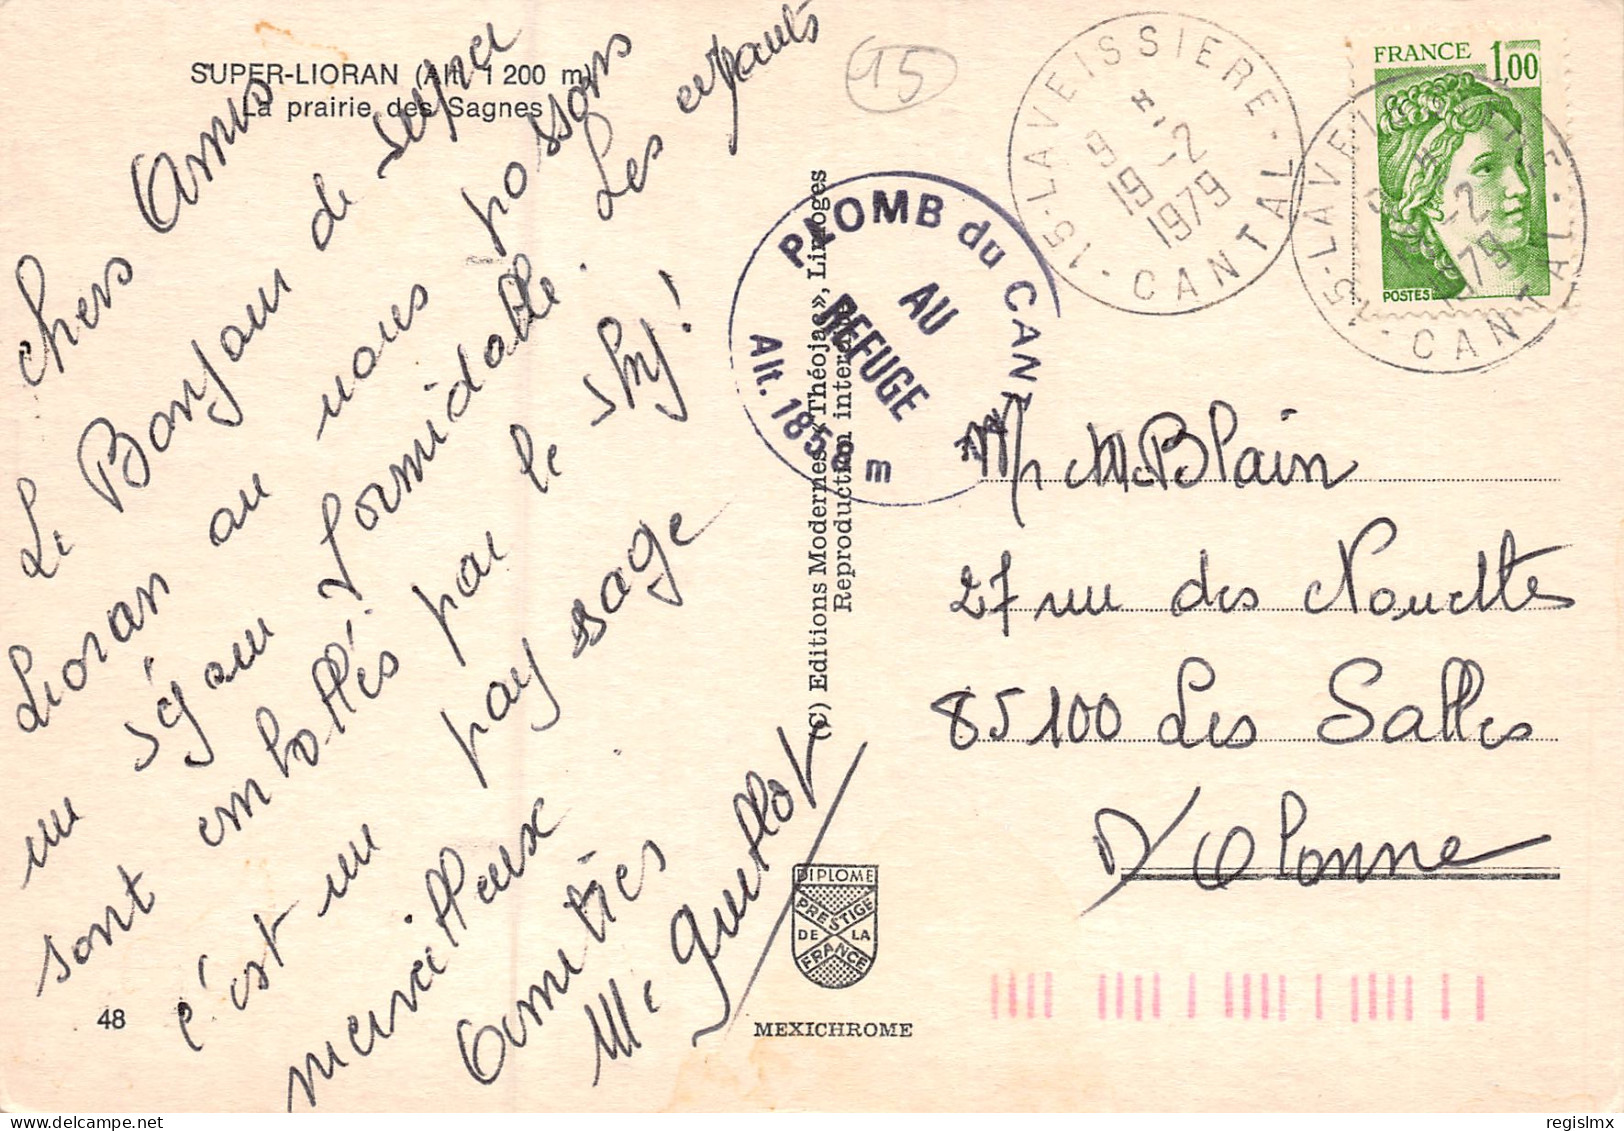 SUPER-LIORAN (Alt. 1 200 m)
La prairie des Sagnes
Chers Amis
Le Bonjour de
Lioran où nous passons
un séjour formidable. Les enfants
sont emballés par le sky!
c'est un paysage
merveilleux
Amitiés
Me Guillot
48
(C) Editions Modernes « Théojac », Limoges
Reproduction interdite
DIPLOME
PRESTIGE
DE LA
FRANCE
MEXICHROME
15
PLOMB du CANTAL
AU
REFUGE
Alt. 1858 m
15-LAVEISSIERE-
9 H
19 -2
1979
CANTAL
FRANCE 1,00
POSTES
15-LAVEISSIERE-
19 -2
1979
CANTAL
Mr Me Blain
27 rue des Nouettes
85100 Les Salles
D'Olonne
regislmx
www.delcampe.net